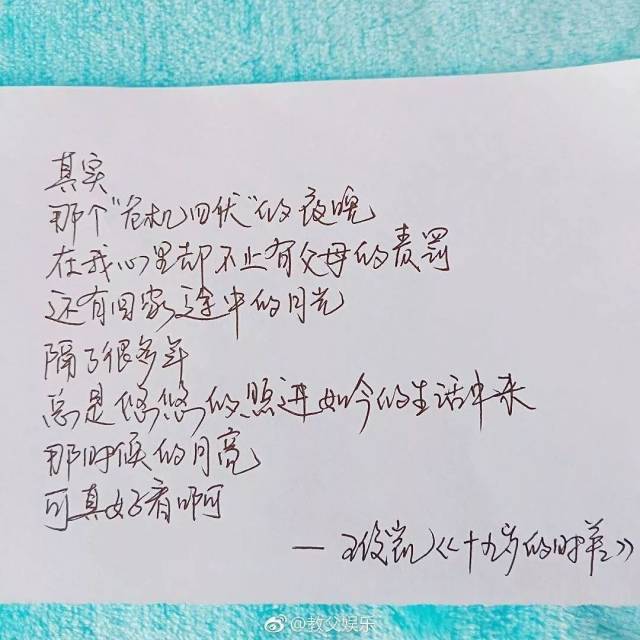 其实
那个“危机四伏”的夜晚
在我心里却不止有父母的责罚
还有回家途中的月光
隔了很多年
总是悠悠的照进如今的生活中来
那时候的月亮
可真好看啊
——王俊凯《十九岁的时差》
@教父娱乐